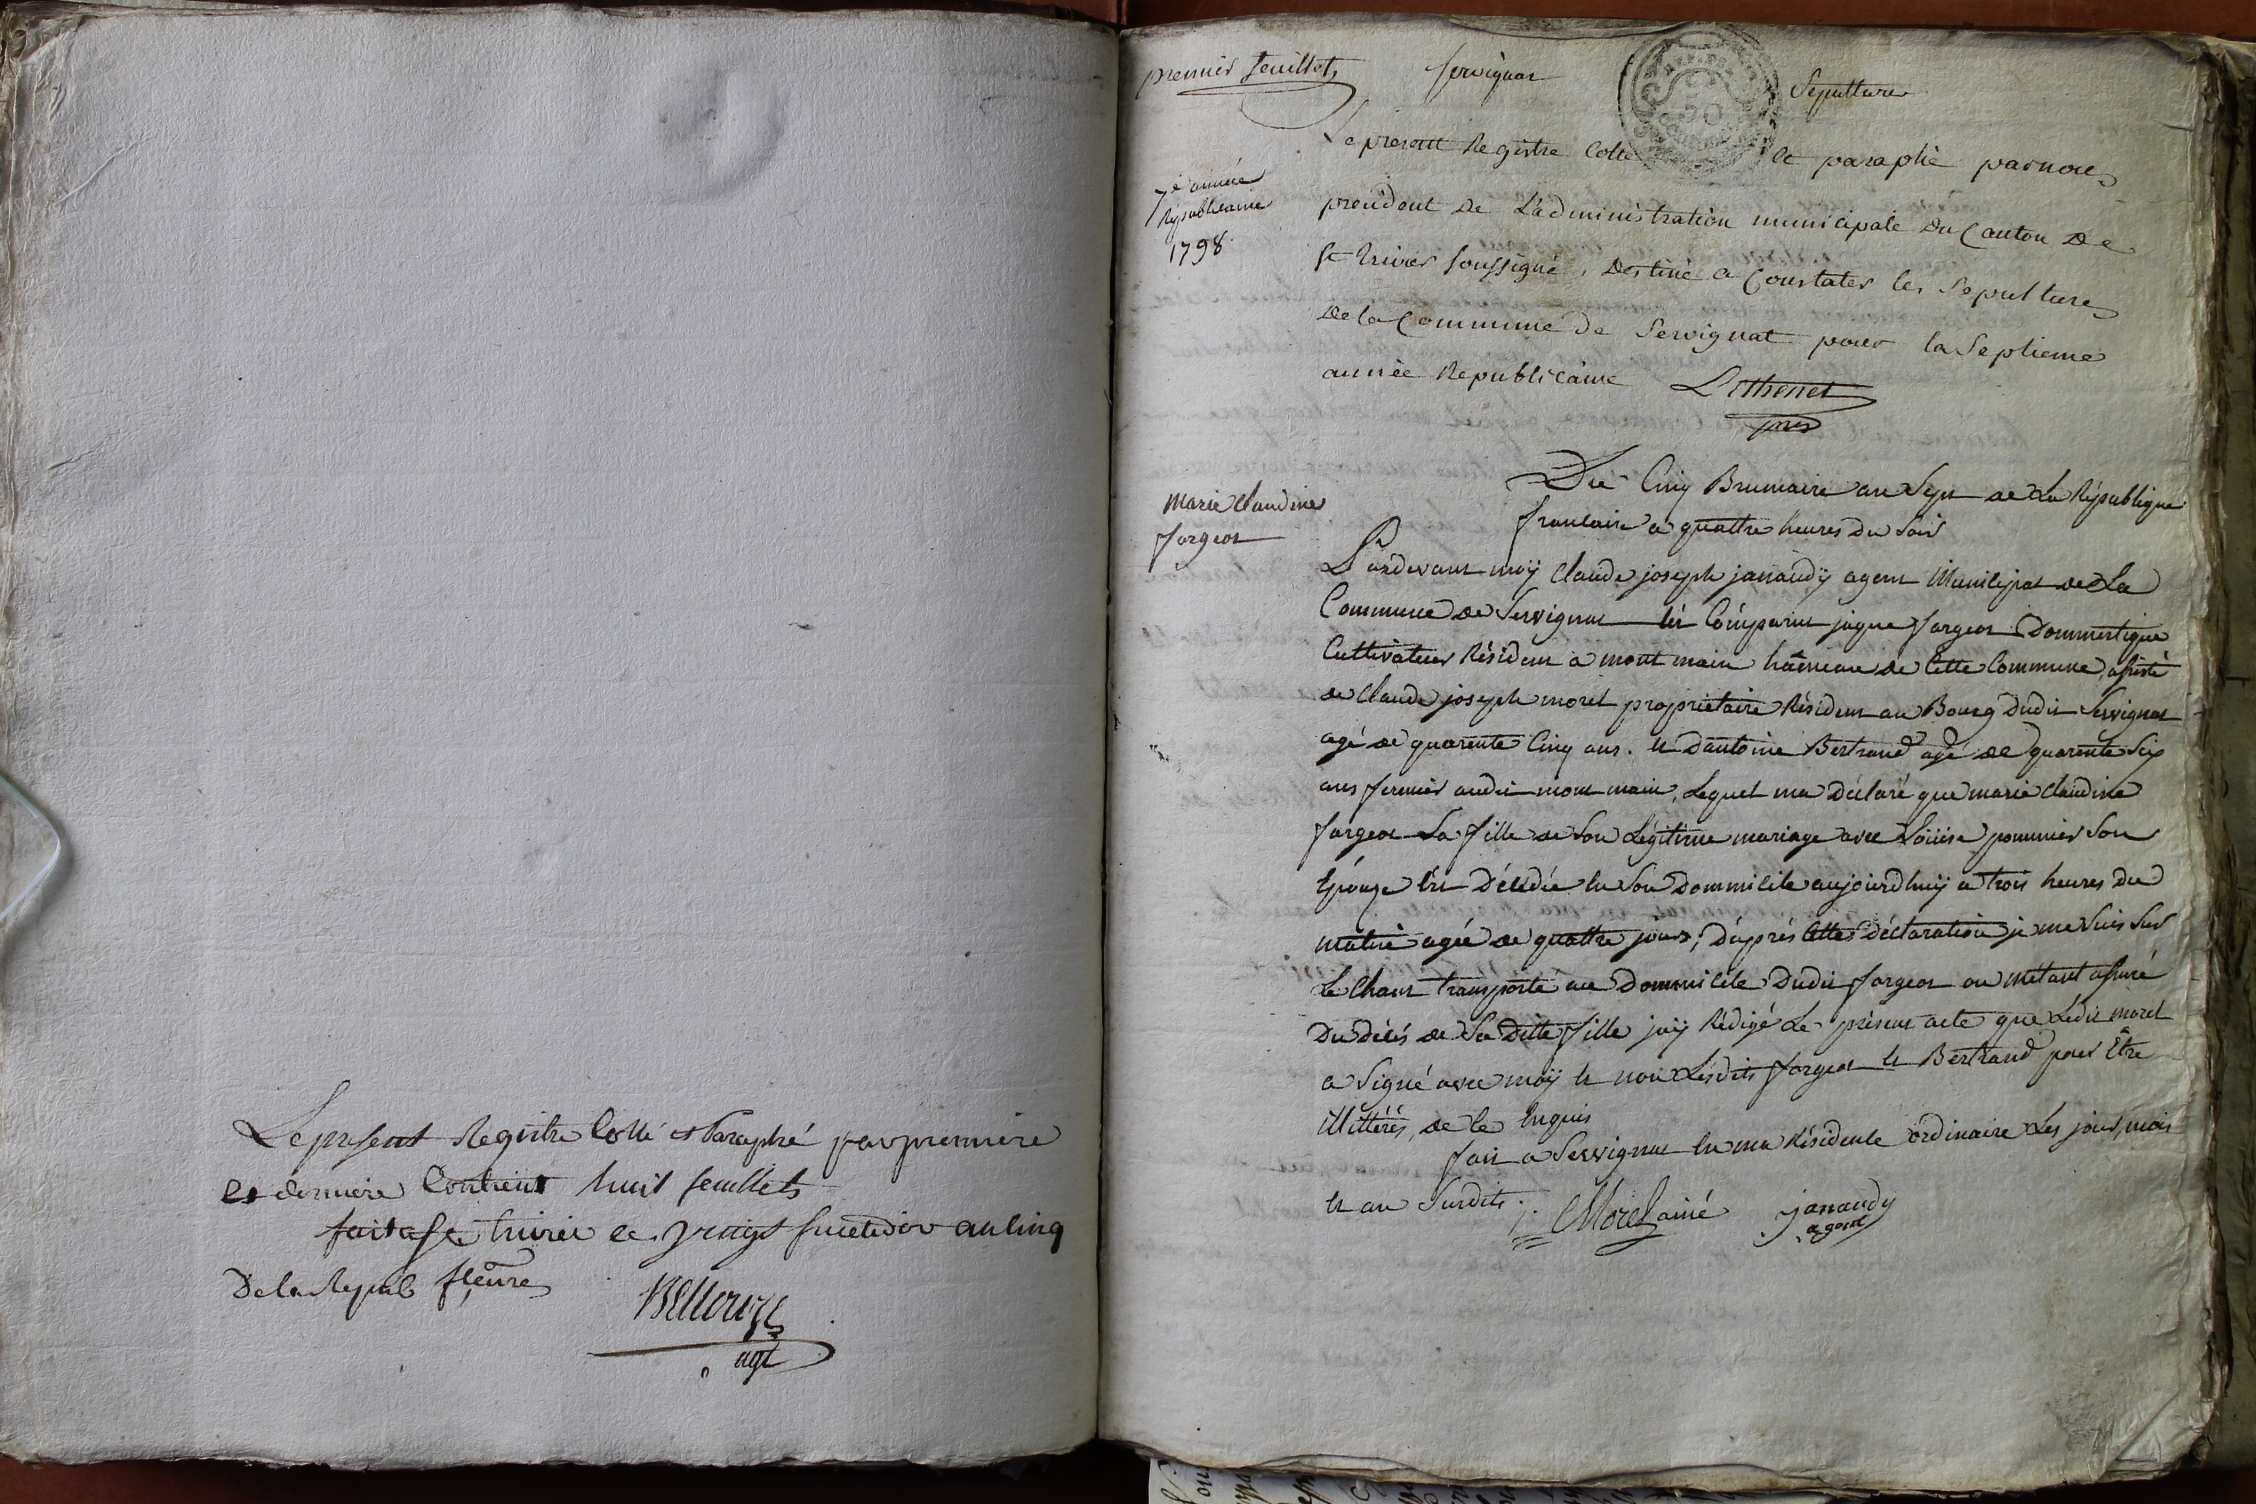 Le present Registre Cotté et Paraphé par premiere
et derniere Contient huit feuillets
fait a St trivier le vingt fructidor an cinq
De la Repub
agt
premier feuillet
Servignat
Sepulture
7e année
Républicaine
1798
Le present Registre Cotté et paraphé par nous
president de L'administration municipale Du Canton De
St Trivier soussigné, Destiné a Constater les Sepulture
De la Commune de Servignat pour la Septieme
année Republicaine
pres
marie Claudine
forgeot
Du Cinq Brumaire an Sept de La République
francaise a quattre heures du soir
Pardevant moÿ Claude joseph janaudÿ agent Municipal de La
Commune de Servignat Est Comparut jaque forgeot Dommestique
Cultivateur Résident a mont main hameau de Cette Commune, assisté
de Claude joseph morel propriétaire Résident au Bourg Dudit Servignat
agé de quarente Cinq ans. et D'antoine Bertrand agé de quarente Six
ans fermier audit mont main, Lequel ma Déclaré que marie Claudine
forgeot La fille de Son Légitime mariage avec Loüise pommier Son
Epouze Est Décédée En Son Dommicile aujourdhuÿ a trois heures du
matin agée de quattre jours; D'après Cette déclaration je me Suis Sur
Le Chant transporté au Dommicile Dudit forgeot ou métant assuré
Du décés de La Ditte fille jaÿ Rédigé Le présent acte que Ledit morel
a Signé avec moÿ et non Lesdits forgeot et Bertrand pour Être
illittérés, de Ce Enquis
fait a Servignat En ma Résidence ordinaire Les jour, mois
et an Susdits.
Morel ainé
janaudy
agent